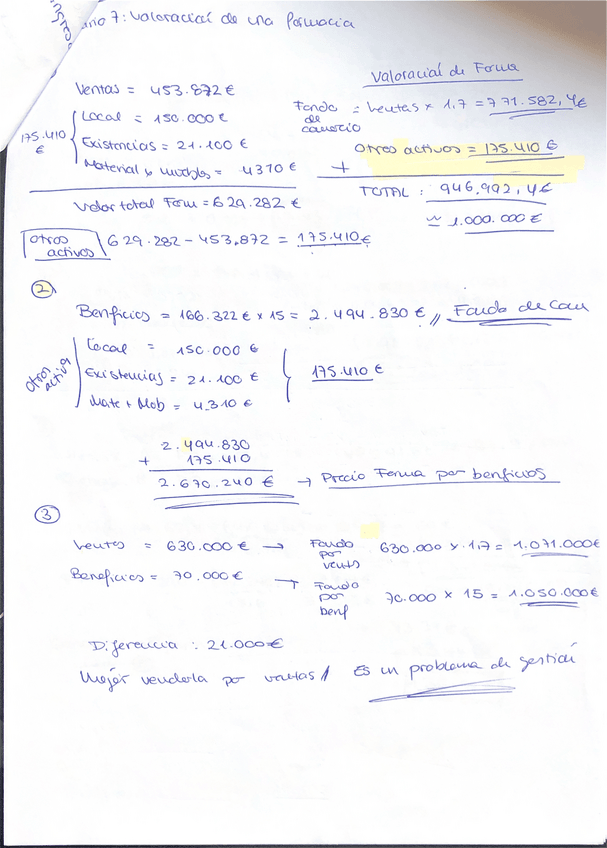 7: Valoración de una farmacia
Valoración de Farma
Ventas = 453.872 €
Local = 150.000 €
Existencias = 21.100 €
Material y muebles = 4310 €
175.410 €
Valor total Farm = 629.282 €
Fondo de comercio = Ventas × 1,7 = 771.582,4 €
Otros activos = 175.410 €
+
TOTAL : 946.992,4 €
≃ 1.000.000 €
Otros activos 629.282 - 453.872 = 175.410 €
2
Benficios = 166.322 € × 15 = 2.494.830 € // Fondo de Com
otros activ
Local = 150.000 €
Existencias = 21.100 €
Mate + Mob = 4.310 €
175.410 €
2.494.830
+ 175.410
2.670.240 € → Precio Farma por benficios
3
Ventas = 630.000 € → Fondo por vents 630.000 × 1,7 = 1.071.000€
Beneficios = 70.000 € → Fondo por benf 70.000 × 15 = 1.050.000€
Diferencia : 21.000€
Mejor venderla por ventas // Es un problema de gestión